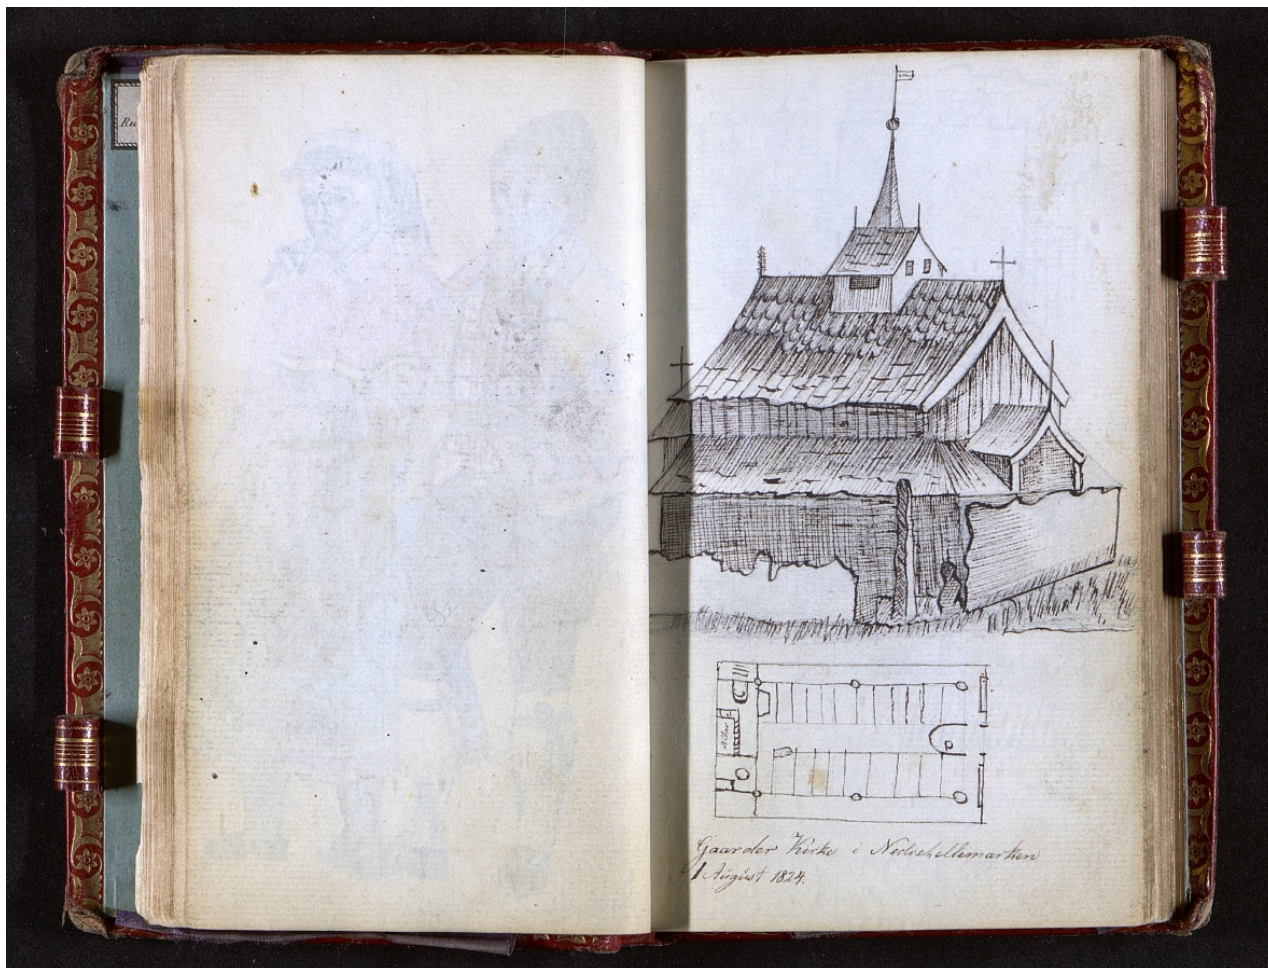 Ru
Altar
Gaarder Kirke i Nedrehellemarken
1 August 1824.